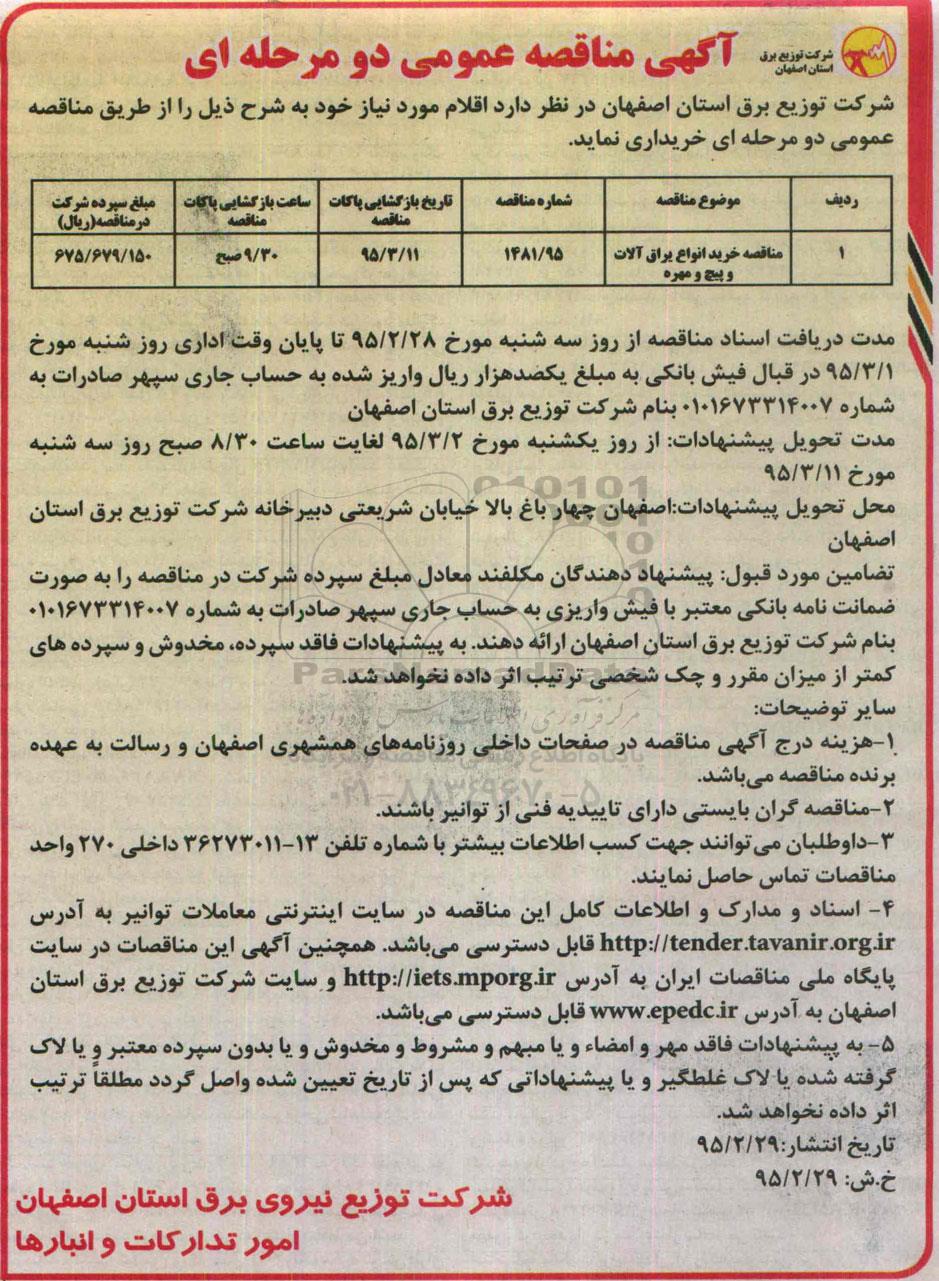 شرکت توزیع برق
استان اصفهان
آگهی مناقصه عمومی دو مرحله ای
شرکت توزیع برق استان اصفهان در نظر دارد اقلام مورد نیاز خود به شرح ذیل را از طریق مناقصه
عمومی دو مرحله ای خریداری نماید.
ردیف موضوع مناقصه شماره مناقصه تاریخ بازگشایی پاکات مناقصه ساعت بازگشایی پاکات مناقصه مبلغ سپرده شرکت در مناقصه(ریال)
۱ مناقصه خرید انواع یراق آلات و پیچ و مهره ۱۴۸۱/۹۵ ۹۵/۳/۱۱ ۹/۳۰ صبح ۶۷۵/۶۷۹/۱۵۰
مدت دریافت اسناد مناقصه از روز سه شنبه مورخ ۹۵/۲/۲۸ تا پایان وقت اداری روز شنبه مورخ
۹۵/۳/۱ در قبال فیش بانکی به مبلغ یکصدهزار ریال واریز شده به حساب جاری سپهر صادرات به
شماره ۰۱۰۱۶۷۳۳۱۴۰۰۷ بنام شرکت توزیع برق استان اصفهان
مدت تحویل پیشنهادات: از روز یکشنبه مورخ ۹۵/۳/۲ لغایت ساعت ۸/۳۰ صبح روز سه شنبه
مورخ ۹۵/۳/۱۱
محل تحویل پیشنهادات:اصفهان چهار باغ بالا خیابان شریعتی دبیرخانه شرکت توزیع برق استان
اصفهان
تضامین مورد قبول: پیشنهاد دهندگان مکلفند معادل مبلغ سپرده شرکت در مناقصه را به صورت
ضمانت نامه بانکی معتبر با فیش واریزی به حساب جاری سپهر صادرات به شماره ۰۱۰۱۶۷۳۳۱۴۰۰۷
بنام شرکت توزیع برق استان اصفهان ارائه دهند. به پیشنهادات فاقد سپرده، مخدوش و سپرده های
کمتر از میزان مقرر و چک شخصی ترتیب اثر داده نخواهد شد.
سایر توضیحات:
۱-هزینه درج آگهی مناقصه در صفحات داخلی روزنامه‌های همشهری اصفهان و رسالت به عهده
برنده مناقصه می‌باشد.
۲-مناقصه گران بایستی دارای تاییدیه فنی از توانیر باشند.
۳-داوطلبان می‌توانند جهت کسب اطلاعات بیشتر با شماره تلفن ۱۳-۳۶۲۷۳۰۱۱ داخلی ۲۷۰ واحد
مناقصات تماس حاصل نمایند.
۴- اسناد و مدارک و اطلاعات کامل این مناقصه در سایت اینترنتی معاملات توانیر به آدرس
http://tender.tavanir.org.ir قابل دسترسی می‌باشد. همچنین آگهی این مناقصات در سایت
پایگاه ملی مناقصات ایران به آدرس http://iets.mporg.ir و سایت شرکت توزیع برق استان
اصفهان به آدرس www.epedc.ir قابل دسترسی می‌باشد.
۵- به پیشنهادات فاقد مهر و امضاء و یا مبهم و مشروط و مخدوش و یا بدون سپرده معتبر و یا لاک
گرفته شده یا لاک غلطگیر و یا پیشنهاداتی که پس از تاریخ تعیین شده واصل گردد مطلقاً ترتیب
اثر داده نخواهد شد.
تاریخ انتشار:۹۵/۲/۲۹
خ.ش: ۹۵/۲/۲۹
شرکت توزیع نیروی برق استان اصفهان
امور تدارکات و انبارها
ParsNamadData
۰۲۱-۸۸۳۴۹۶۷۰-۵